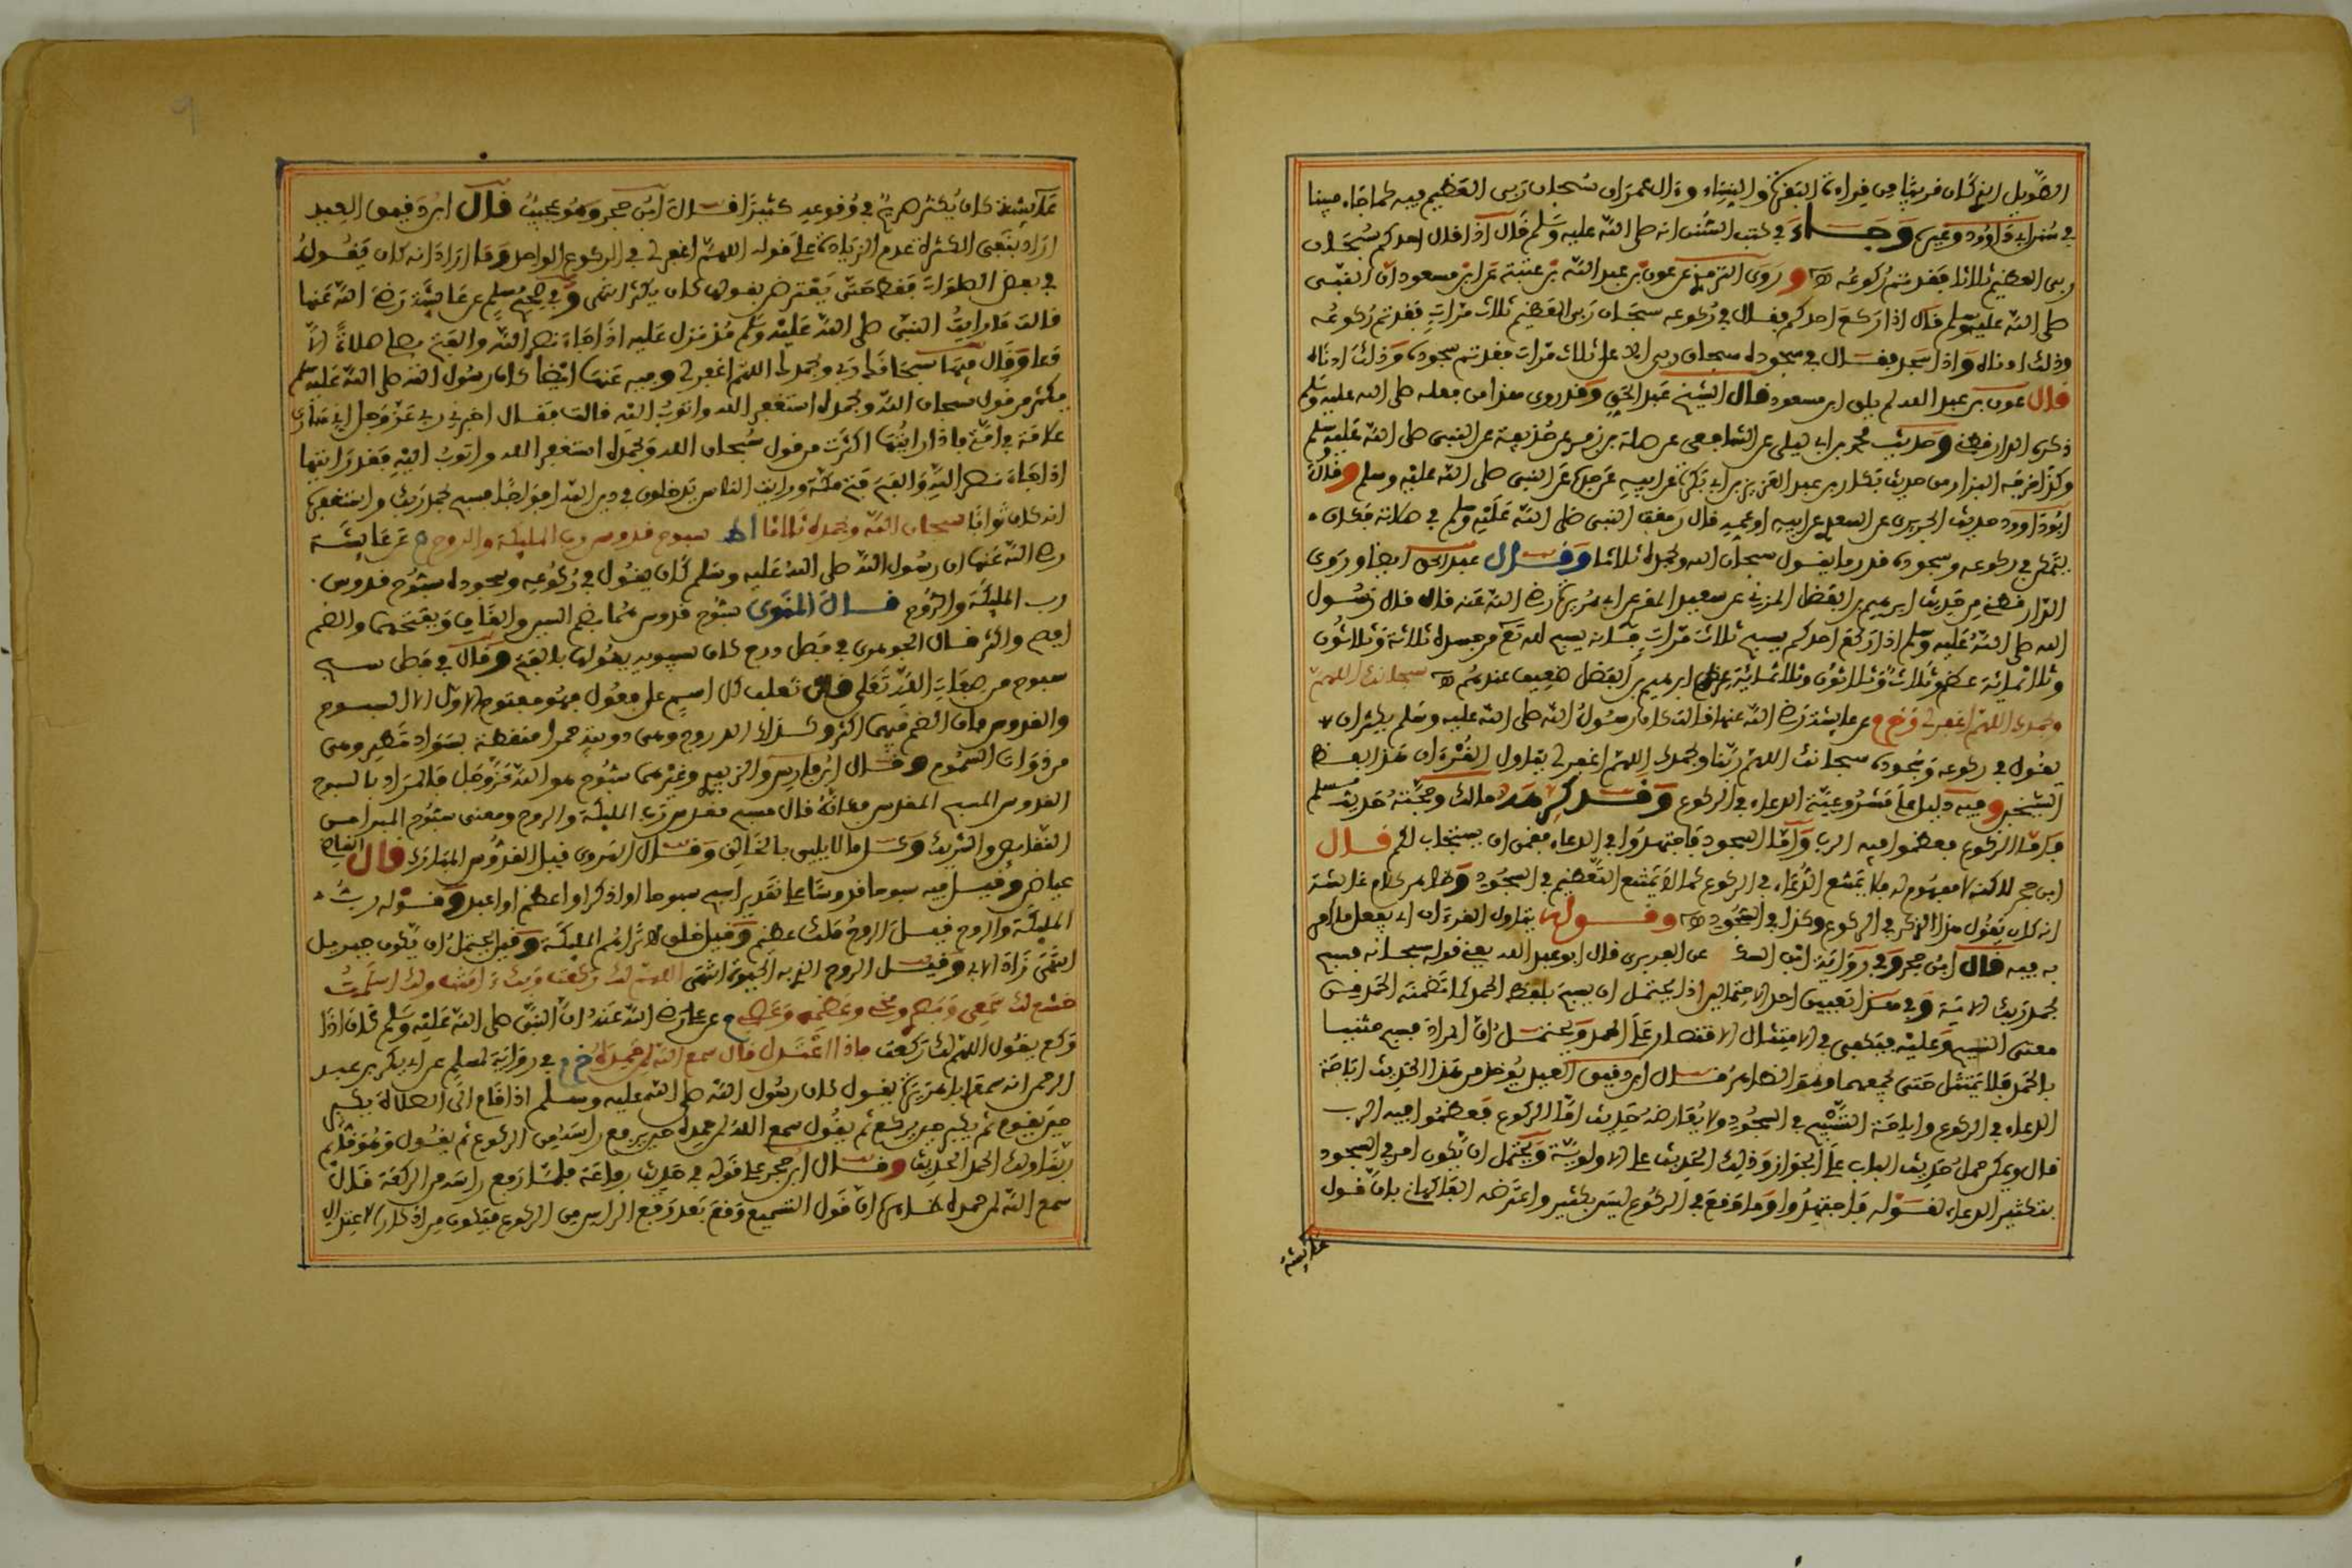 الطويل الذي كان قريبا من قراءة البقرة والنساء وءال عمران سبحان ربي العظيم فيه كما جاء مبينا
في سنن أبي داوود وغيره وجاء في كتب السنن انه صلى الله عليه وسلم قال اذا قال احدكم سبحان
ربي العظيم ثلاثا فقد تم ركوعه وروى الترمذي عن عون بن عبد الله بن عتبة عن ابن مسعود ان النبي
صلى الله عليه وسلم قال اذا ركع احدكم فقال في ركوعه سبحان ربي العظيم ثلاث مرات فقد تم ركوعه
وذلك ادناه واذا سجد فقال في سجوده سبحان ربي الاعلى ثلاث مرات فقد تم سجوده وذلك ادناه
قال عون بن عبد الله لم يلق ابن مسعود قال الشيخ عبد الحق وقد روي هذا من فعله صلى الله عليه وسلم
ذكره الدارقطني وحديث محمد بن ابي ليلى عن الشعبي عن صلة بن زفر عن حذيفة عن النبي صلى الله عليه وسلم
وكذا خرجه البزار من حديث بكار بن عبد العزيز بن ابي بكرة عن ابيه عن جده عن النبي صلى الله عليه وسلم وقال
ابو داوود حديث الجريري عن السعدي عن ابيه او عمه قال رمقت النبي صلى الله عليه وسلم في صلاته فكان
يتمكن في ركوعه وسجوده قدر ما يقول سبحان الله وبحمده ثلاثا وقال عبد الحق ايضا وروى
الدارقطني من حديث ابراهيم بن الفضل المزني عن سعيد المقبري عن ابي هريرة رضي الله عنه قال قال رسول
الله صلى الله عليه وسلم اذا ركع احدكم يسبح ثلاث مرات فانه يسبح لله تع من جسده ثلاثة وثلاثون
وثلاثمائة عظم وثلاث وثلاثون وثلاثمائة عرق ابراهيم بن الفضل ضعيف عندهم سبحانك اللهم
وبحمدك اللهم اغفر لي وخ م عن عايشة رضي الله عنها قالت كان رسول الله صلى الله عليه وسلم يكثر ان
يقول في ركوعه وسجوده سبحانك اللهم ربنا وبحمدك اللهم اغفر لي يتاول القرءان هذا لفظ
الشيخين وفيه دليل على مشروعية الدعاء في الركوع وقد كرهه مالك وحجته حديث مسلم
فاما الركوع فعظموا فيه الرب واما السجود فاجتهدوا في الدعاء فقمن ان يستجاب لكم قال
ابن حجر لكنه لا مفهوم له فلا يمتنع الدعاء في الركوع كما لا يمتنع التعظيم في السجود وظاهر كلام عائشة
انه كان يقول هذا الذكر في الركوع وكذا في السجود وقولها يتاول القرءان اي يفعل ما امر
به فيه قال ابن حجر وفي رواية ابن السكن عن الفربري قال ابو عبد الله يعني قوله سبحانه فسبح
بحمد ربك الاية وفي هذا تعيين احد الاحتمالين اذ يحتمل ان يسبح بلفظ الحمد لما تضمنه الحمد من
معنى التسبيح وعليه فيكفي في الامتثال الاقتصار على الحمد ويحتمل ان المراد فسبح متلبسا
بالحمد فلا يمتثل حتى يجمعهما وهو الظاهر قال ابن دقيق العيد يوخذ من هذا الحديث اباحة
الدعاء في الركوع واباحة التسبيح في السجود ولا يعارضه حديث اما الركوع فعظموا فيه الرب
قال ويمكن حمل حديث الباب على الجواز وذلك الحديث على الاولوية ويحتمل ان يكون امر في السجود
بتكثير الدعاء لقوله فاجتهدوا وما وقع في الركوع ليس بكثير واعترضه الفاكهاني بان قول
عائشة
عائشة كان يكثر صريح في وقوعه كثيرا قال ابن حجر وهو عجيب قال ابن دقيق العيد
اراد بنفي الكثرة عدم الزيادة على قوله اللهم اغفر لي في الركوع الواحد وما اراد انه كان يقوله
في بعض الصلوات فقط حتى يعترض بقولها كان يكثر انتهى وفي صحيح مسلم عن عايشة رضي الله عنها
قالت ما رايت النبي صلى الله عليه وسلم مذ نزل عليه اذا جاء نصر الله والفتح يصلي صلاة الا
دعا وقال فيها سبحانك ربي وبحمدك اللهم اغفر لي وفيه عنها ايضا كان رسول الله صلى الله عليه وسلم
يكثر من قول سبحان الله وبحمده استغفر الله واتوب اليه قالت فقال اخبرني ربي عز وجل اني سارى
علامة في امتي فاذا رايتها اكثرت من قول سبحان الله وبحمده استغفر الله واتوب اليه فقد رايتها
اذا جاء نصر الله والفتح فتح مكة ورايت الناس يدخلون في دين الله افواجا فسبح بحمد ربك واستغفره
انه كان توابا سبحان الله وبحمده ثلاثا اط سبوح قدوس رب المليكة والروح م عن عايشة
رضي الله عنها ان رسول الله صلى الله عليه وسلم كان يقول في ركوعه وسجوده سبوح قدوس
رب المليكة والروح قال النووي سبوح قدوس هما بضم السين والقاف وبفتحهما والضم
افصح واكثر قال الجوهري في فصل ذرح كان سيبويه يقولها بالفتح وقال في فصل سبح
سبوح من صفات الله تعلى قال ثعلب كل اسم على فعول فهو مفتوح الاول الا السبوح
والقدوس فان الضم فيهما اكثر وكذلك الذروح وهي دويبة حمرا منقطة بسواد تطير وهي
من ذوات السموم وقال ابن فارس والزبيدي وغيرهما سبوح هو الله عز وجل فالمراد بالسبوح
القدوس المسبح المقدس فكانه قال مسبح مقدس رب المليكة والروح ومعنى سبوح المبرا من
النقايص والشريك وكل ما لا يليق بالخالق وقال الهروي قيل القدوس المبارك قال القاضي
عياض وقيل فيه سبوحا قدوسا على تقدير اسبح سبوحا او اذكر او اعظم او اعبد وقوله رب
المليكة والروح قيل الروح ملك عظيم وقيل خلق لا تراهم المليكة وقيل يحتمل ان يكون جبريل
انتهى زاد الابي وقيل الروح الذي به الحيوة انتهى اللهم لك ركعت وبك ءامنت ولك اسلمت
خشع لك سمعي وبصري ومخي وعظمي وعصبي م عن علي رضي الله عنه ان النبي صلى الله عليه وسلم كان اذا
ركع يقول اللهم لك ركعت فاذا اعتدل قال سمع الله لمن حمده خ م في رواية لمسلم عن ابي بكر بن عبد
الرحمن انه سمع ابا هريرة يقول كان رسول الله صلى الله عليه وسلم اذا قام الى الصلاة يكبر
حين يقوم ثم يكبر حين يركع ثم يقول سمع الله لمن حمده حين يرفع راسه من الركوع ثم يقول وهو قائم
ربنا ولك الحمد الحديث وقال ابن حجر على قوله في حديث رفاعة فلما رفع راسه من الركعة قال
سمع الله لمن حمده ظاهره ان قول التسميع وقع بعد رفع الراس من الركوع فيكون من اذكار الاعتدال